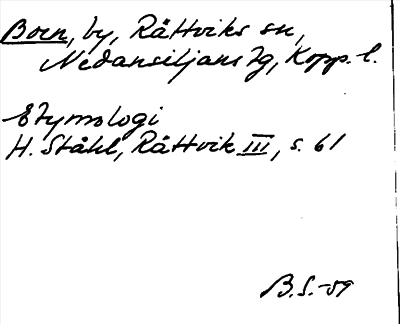 Born, by, Rättviks sn,
Nedansiljans tg, Kopp. l.
Etymologi
H. Ståhl, Rättvik III, s. 61
B.S.-59